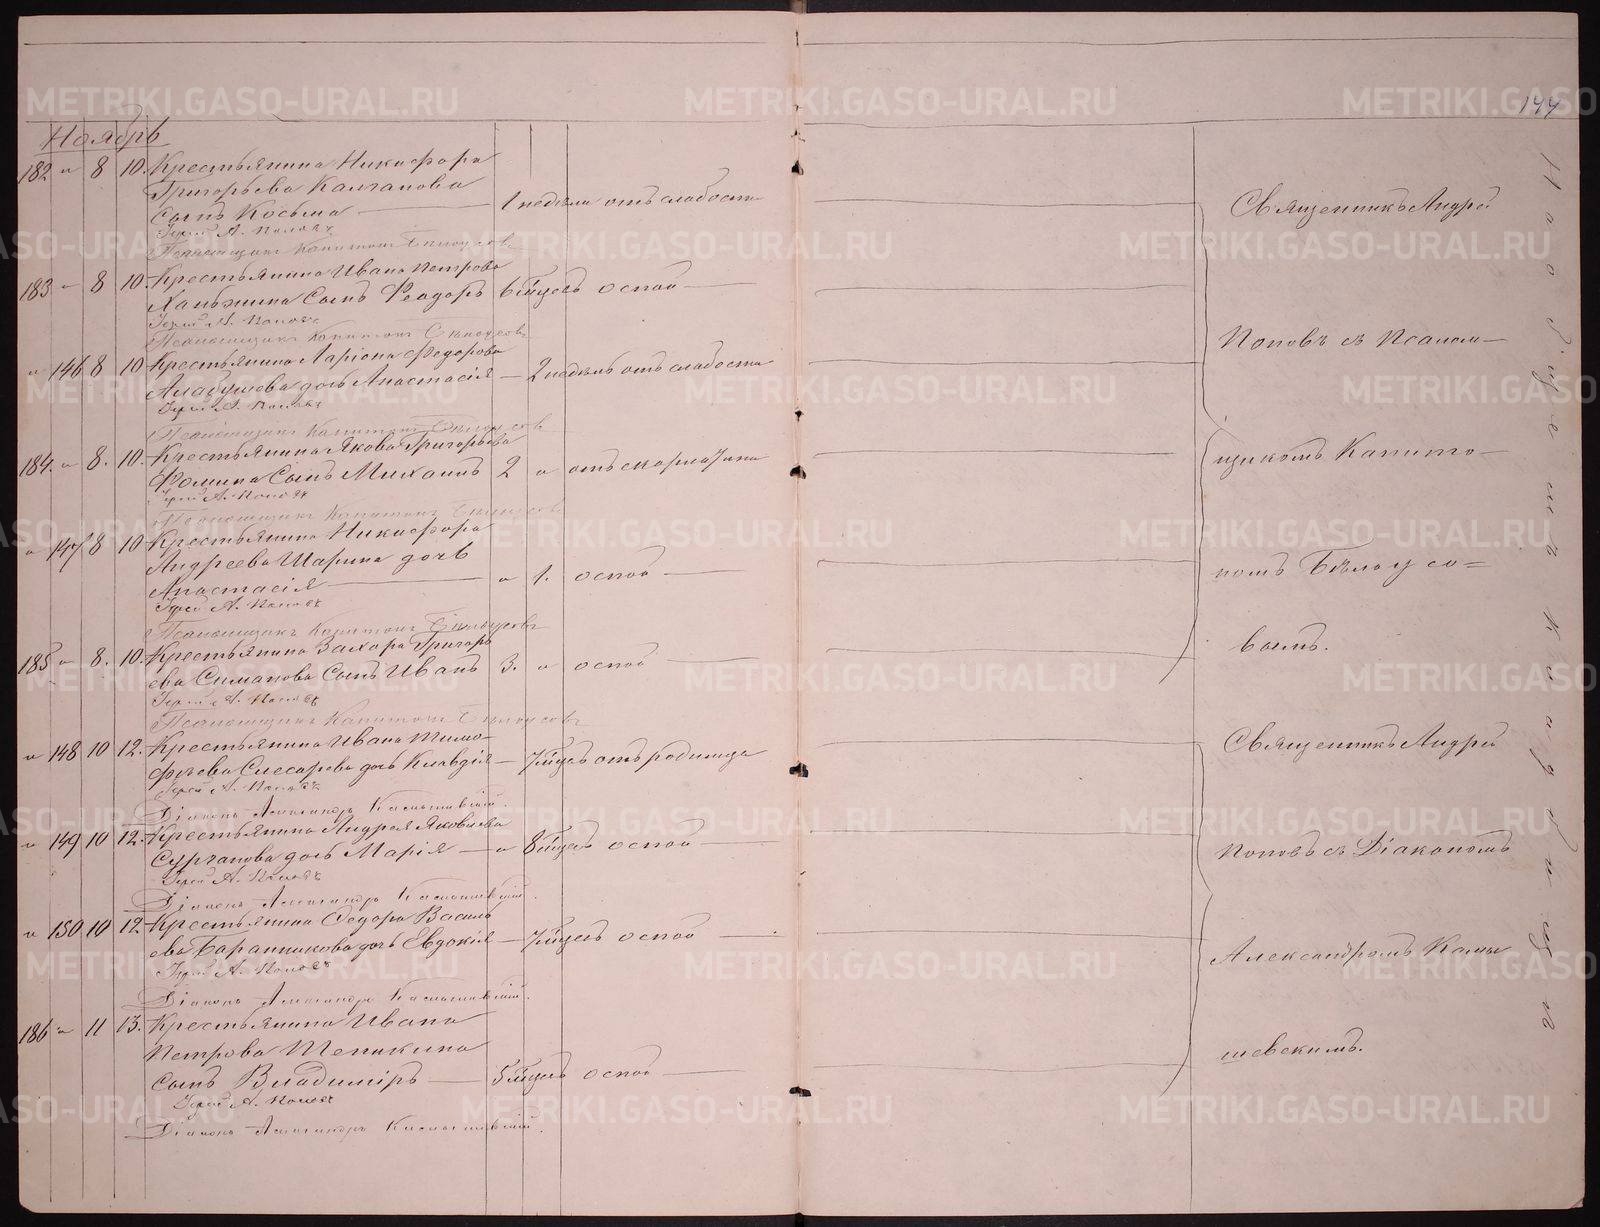 144
Ноябрь
182 " 8 10. Крестьянина Никифора
Григорьева Калганова
сынъ Косьма — 1 недели отъ слабости
Іерей А. Поповъ
Псаломщикъ Капитонъ Бѣлоусовъ
183 - 8 10. Крестьянина Ивана Петрова
сынъ Феодоръ 6 мцевъ оспой
Іерей А. Поповъ
Псаломщикъ Капитонъ Бѣлоусовъ
" 146 8 10 Крестьянина Ларіона Федорова
дочь Анастасія — 2 недель отъ слабости
Іерей А. Поповъ
Псаломщикъ Капитонъ Бѣлоусовъ
184. " 8. 10. Крестьянина Якова Григорьева
Фомина сынъ Михаилъ 2 " отъ скарлатины
Іерей А. Поповъ
Псаломщикъ Капитонъ Бѣлоусовъ
" 147 8 10 Крестьянина Никифора
Андреева Шарина дочь
Анастасія — " 1. оспой
Іерей А. Поповъ
Псаломщикъ Капитонъ Бѣлоусовъ
185 " 8. 10. Крестьянина Захара Григорь
ева Симанова сынъ Иванъ 3. " оспой
Іерей А. Поповъ
Псаломщикъ Капитонъ Бѣлоусовъ
" 148 10 12. Крестьянина Ивана Тимо-
феева Слесарева дочь Клавдія — 7 мцевъ отъ родимца
Іерей А. Поповъ
Діаконъ Александръ Камышевскій.
" 149 10 12. Крестьянина Андрея Яковлева
Сурганова дочь Марія — " 8 мцевъ оспой
Іерей А. Поповъ
Діаконъ Александръ Камышевскій.
" 150 10 12. Крестьянина Федора Василь
ева Баранникова дочь Евдокія — 7 мцевъ оспой
Іерей А. Поповъ
Діаконъ Александръ Камышевскій.
186 " 11 13. Крестьянина Ивана
Петрова Тепикина
сынъ Владимиръ — 5 мцевъ оспой
Іерей А. Поповъ
Діаконъ Александръ Камышевскій.
Священникъ Андрей
Поповъ съ Псалом-
щикомъ Капито-
номъ Бѣлоусо=
вымъ.
Священникъ Андрей
Поповъ съ Діакономъ
Александромъ Камы
шевскимъ.
На общемъ кладбищѣ
METRIKI.GASO-URAL.RU